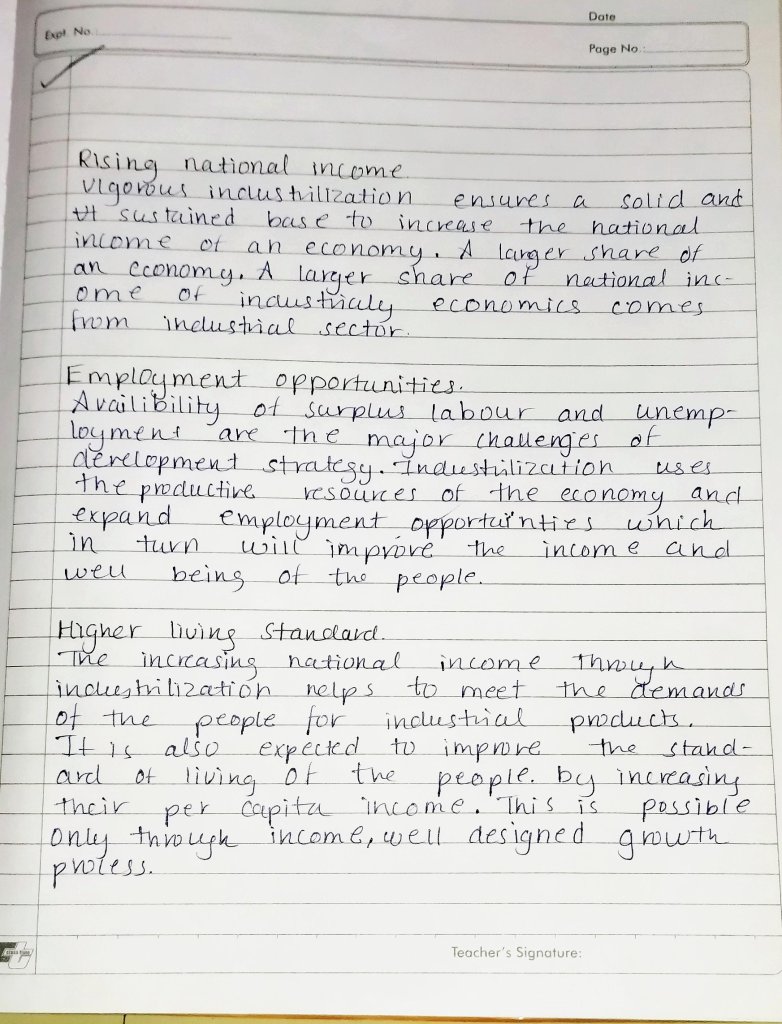 Date
Expt. No.
Page No.
Rising national income.
Vigorous industrilization ensures a solid and
sustained base to increase the national
income of an economy. A larger share of
an economy. A larger share of national inc-
ome of industrialy economics comes
from industrial sector.
Employment opportunities.
Availibility of surplus labour and unemp-
loyment are the major challenges of
development strategy. Industrilization uses
the productive resources of the economy and
expand employment opportunties which
in turn will improve the income and
well being of the people.
Higher living standard.
The increasing national income through
industrilization helps to meet the demands
of the people for industrial products.
It is also expected to improve the stand-
ard of living of the people. by increasing
their per capita income. This is possible
only through income, well designed growth
process.
Teacher's Signature: